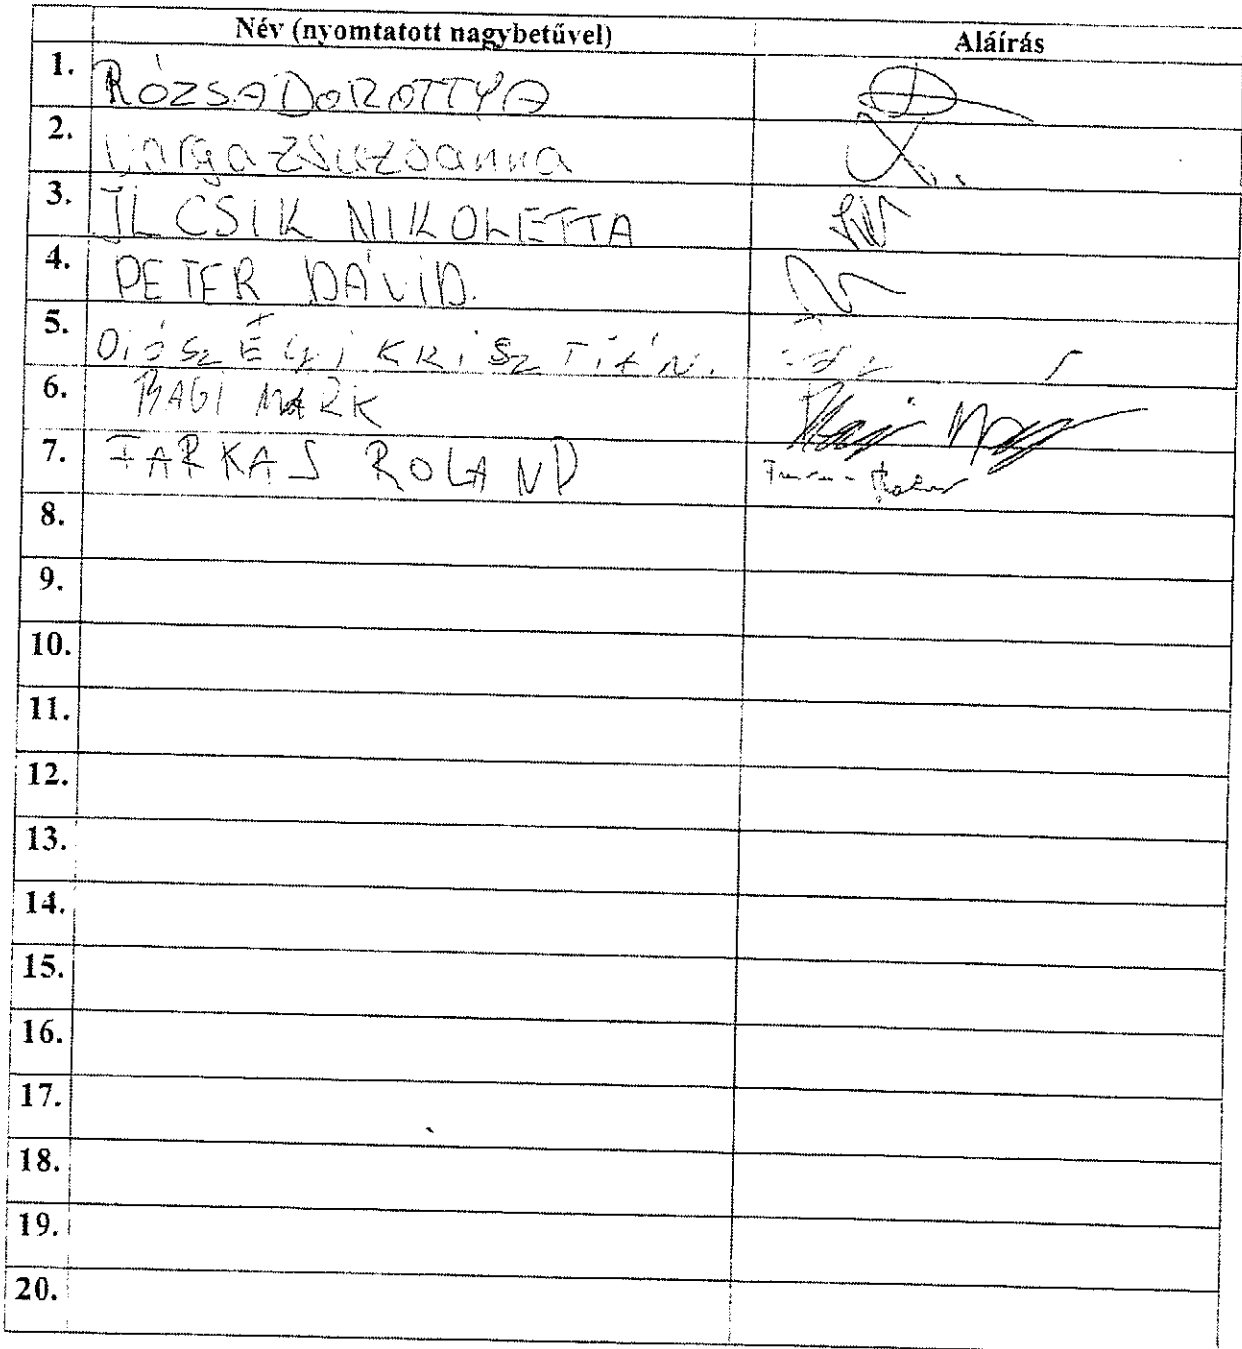 Név (nyomtatott nagybetűvel) Aláírás
1. RÓZSA DOROTTYA
2. Varga Zsuzsanna
3. ILCSIK NIKOLETTA
4. PETER DÁVID.
5. DiószÉGi KRiSzTiÁN.
6. BAGI MARK
7. FARKAS ROLAND
8.
9.
10.
11.
12.
13.
14.
15.
16.
17.
18.
19.
20.